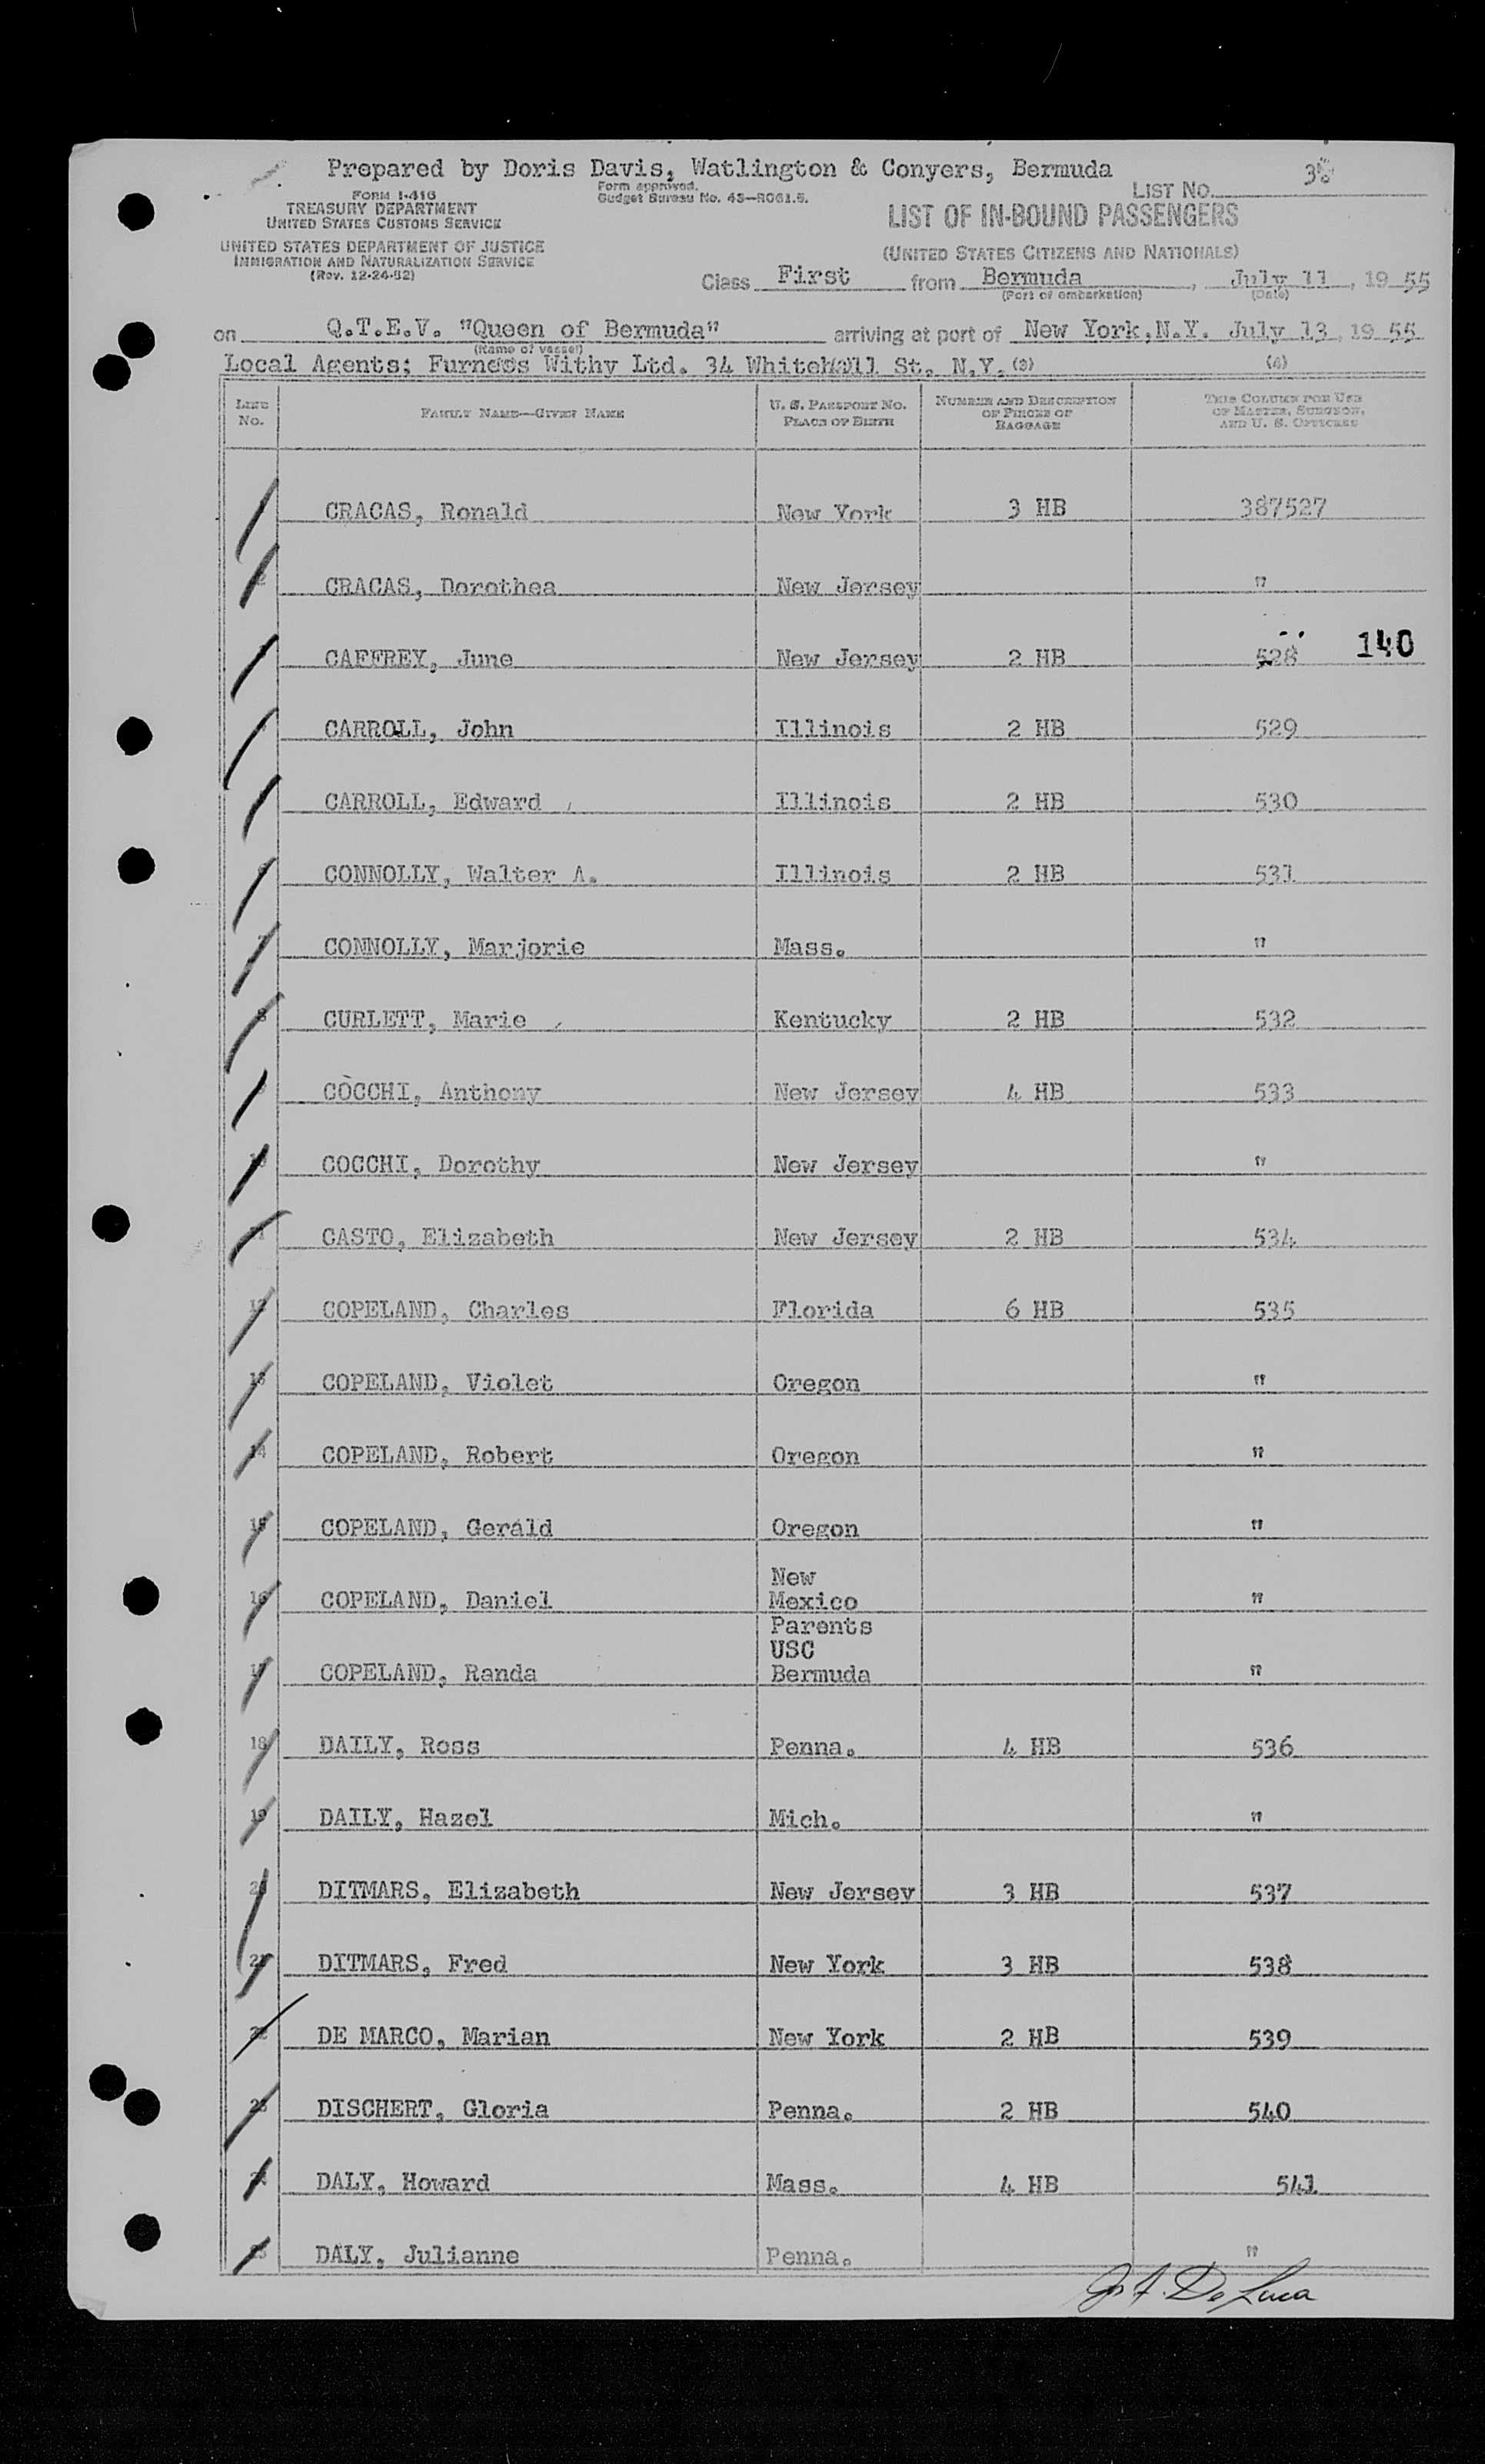 Prepared by Doris Davis, Watlington & Conyers, Bermuda
FORM I-416
TREASURY DEPARTMENT
UNITED STATES CUSTOMS SERVICE
UNITED STATES DEPARTMENT OF JUSTICE
IMMIGRATION AND NATURALIZATION SERVICE
(Rev. 12-24-52)
Form approved.
Budget Bureau No. 43—R061.5.
LIST NO.
LIST OF IN-BOUND PASSENGERS
(UNITED STATES CITIZENS AND NATIONALS)
Class First from Bermuda, July 11, 1955
(Port of embarkation) (Date)
on Q.T.E.V. "Queen of Bermuda" arriving at port of New York, N.Y. July 13, 1955
(Name of vessel)
Local Agents: Furness Withy Ltd. 34 Whitehall St. N.Y. (3) (4)
LINE NO. FAMILY NAME—GIVEN NAME U. S. PASSPORT NO. PLACE OF BIRTH NUMBER AND DESCRIPTION OF PIECES OF BAGGAGE THIS COLUMN FOR USE OF MASTER, SURGEON, AND U. S. OFFICERS
CRACAS, Ronald New York 3 HB 387527
2 CRACAS, Dorothea New Jersey "
CAFFREY, June New Jersey 2 HB 528 140
CARROLL, John Illinois 2 HB 529
CARROLL, Edward Illinois 2 HB 530
6 CONNOLLY, Walter A. Illinois 2 HB 531
7 CONNOLLY, Marjorie Mass. "
8 CURLETT, Marie Kentucky 2 HB 532
9 COCCHI, Anthony New Jersey 4 HB 533
10 COCCHI, Dorothy New Jersey "
11 CASTO, Elizabeth New Jersey 2 HB 534
12 COPELAND, Charles Florida 6 HB 535
13 COPELAND, Violet Oregon "
14 COPELAND, Robert Oregon "
15 COPELAND, Gerald Oregon "
New
16 COPELAND, Daniel Mexico "
Parents
USC
17 COPELAND, Randa Bermuda "
18 DAILY, Ross Penna. 4 HB 536
19 DAILY, Hazel Mich. "
20 DITMARS, Elizabeth New Jersey 3 HB 537
21 DITMARS, Fred New York 3 HB 538
22 DE MARCO, Marian New York 2 HB 539
23 DISCHERT, Gloria Penna. 2 HB 540
24 DALY, Howard Mass. 4 HB 541
25 DALY, Julianne Penna. "
De Luca